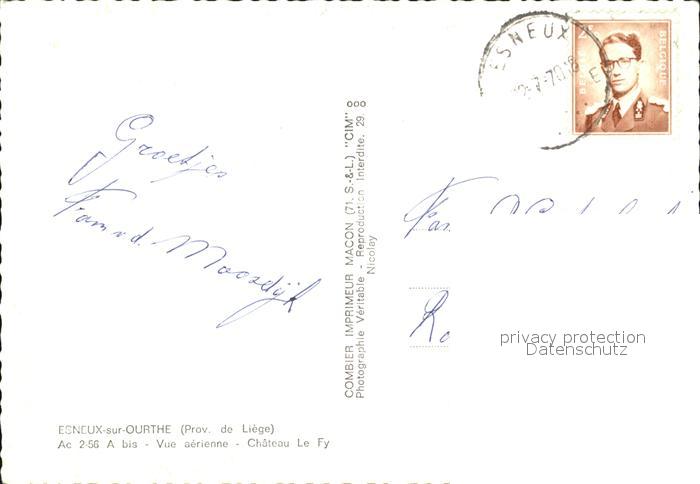 ESNEUX
2-7-70 18
BELGIE BELGIQUE
Groetjes
Fam v.d. Moosdijk
COMBIER IMPRIMEUR MACON (71. S.-&-L.) "CIM"
Photographie Véritable - Reproduction Interdite. 29
Nicolay
Fam.
Ro
privacy protection
Datenschutz
ESNEUX-sur-OURTHE (Prov. de Liège)
Ac 2-56 A bis - Vue aérienne - Château Le Fy